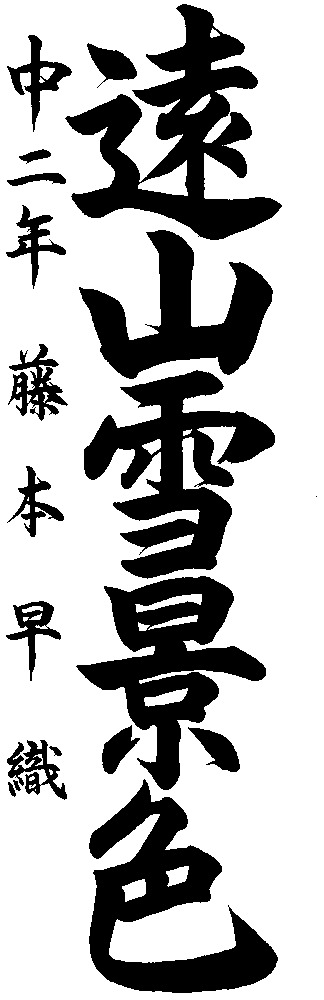 遠山雪景色
中二年 藤本早織